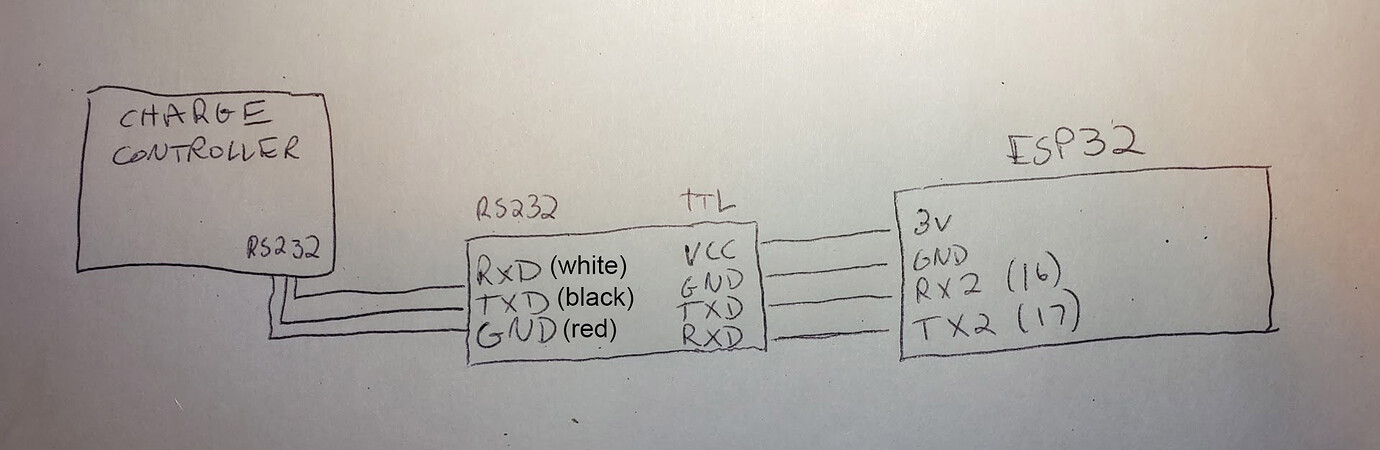 CHARGE
CONTROLLER
RS232
RS232
RXD (white)
TXD (black)
GND (red)
TTL
VCC
GND
TXD
RXD
ESP32
3V
GND
RX2 (16)
TX2 (17)